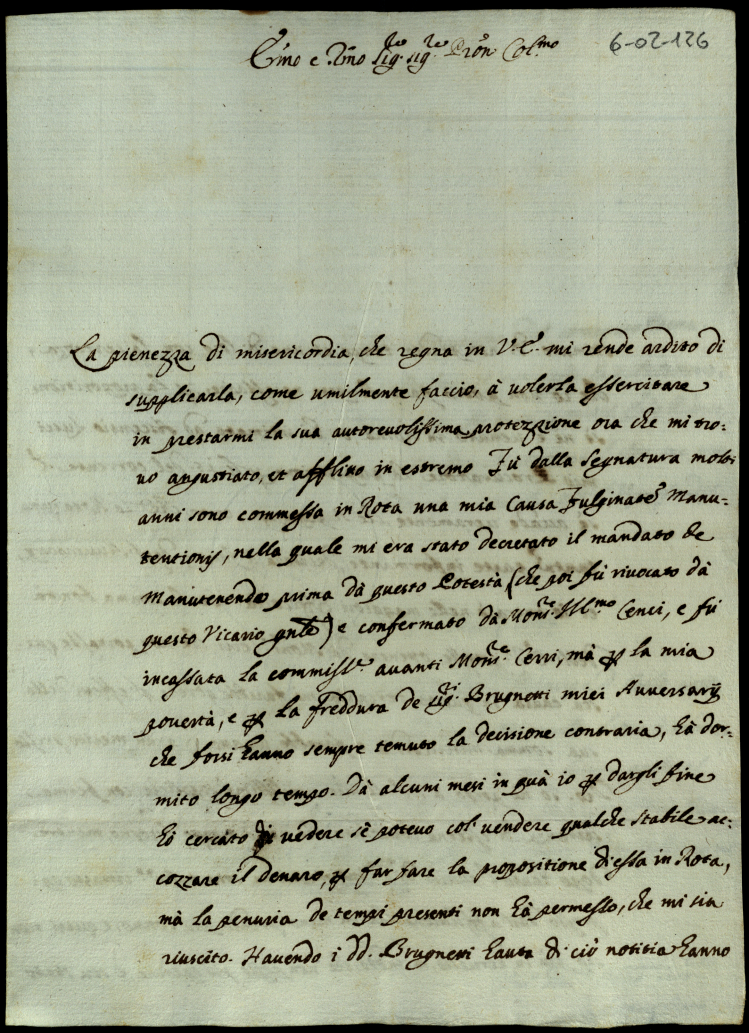 6-02-126
Em̃o e Rm̃o Sig.re Sig.re Prõn Col.mo
La pienezza di misericordia, che regna in V.E. mi rende ardito di
supplicarla, come umilmente faccio, à volerla essercitare
in prestarmi la sua autorevolissima protezzione ora che mi tro=
vo angustiato, et afflitto in estremo Fù dalla Segnatura molti
anni sono commessa in Rota una mia Causa Fulginaten̄ Manu=
tentionis, nella quale mi era stato decretato il mandato de
Manutenendo prima dà questo Potestà (che poi fù rivocato dà
questo Vicario gñle) e confermato dà Mons.re Ill.mo Cenci, e fù
incassata la commiss.e avanti Mons.re Cerri, mà ꝑ la mia
povertà, e ꝑ la freddura de Sig.ri Brugnetti miei Avversarij
che forsi hanno sempre temuto la decisione contraria, hà dor=
mito longo tempo. Dà alcuni mesi in quà io ꝑ dargli fine
hò cercato di vedere sè potevo col vendere qualche stabile ac=
cozzare il denaro, ꝑ far fare la propositione di essa in Rota,
mà la penuria de tempi presenti non hà permesso, che mi sia
riuscito. Havendo i dd. Brugnetti hauta di ciò notitia hanno